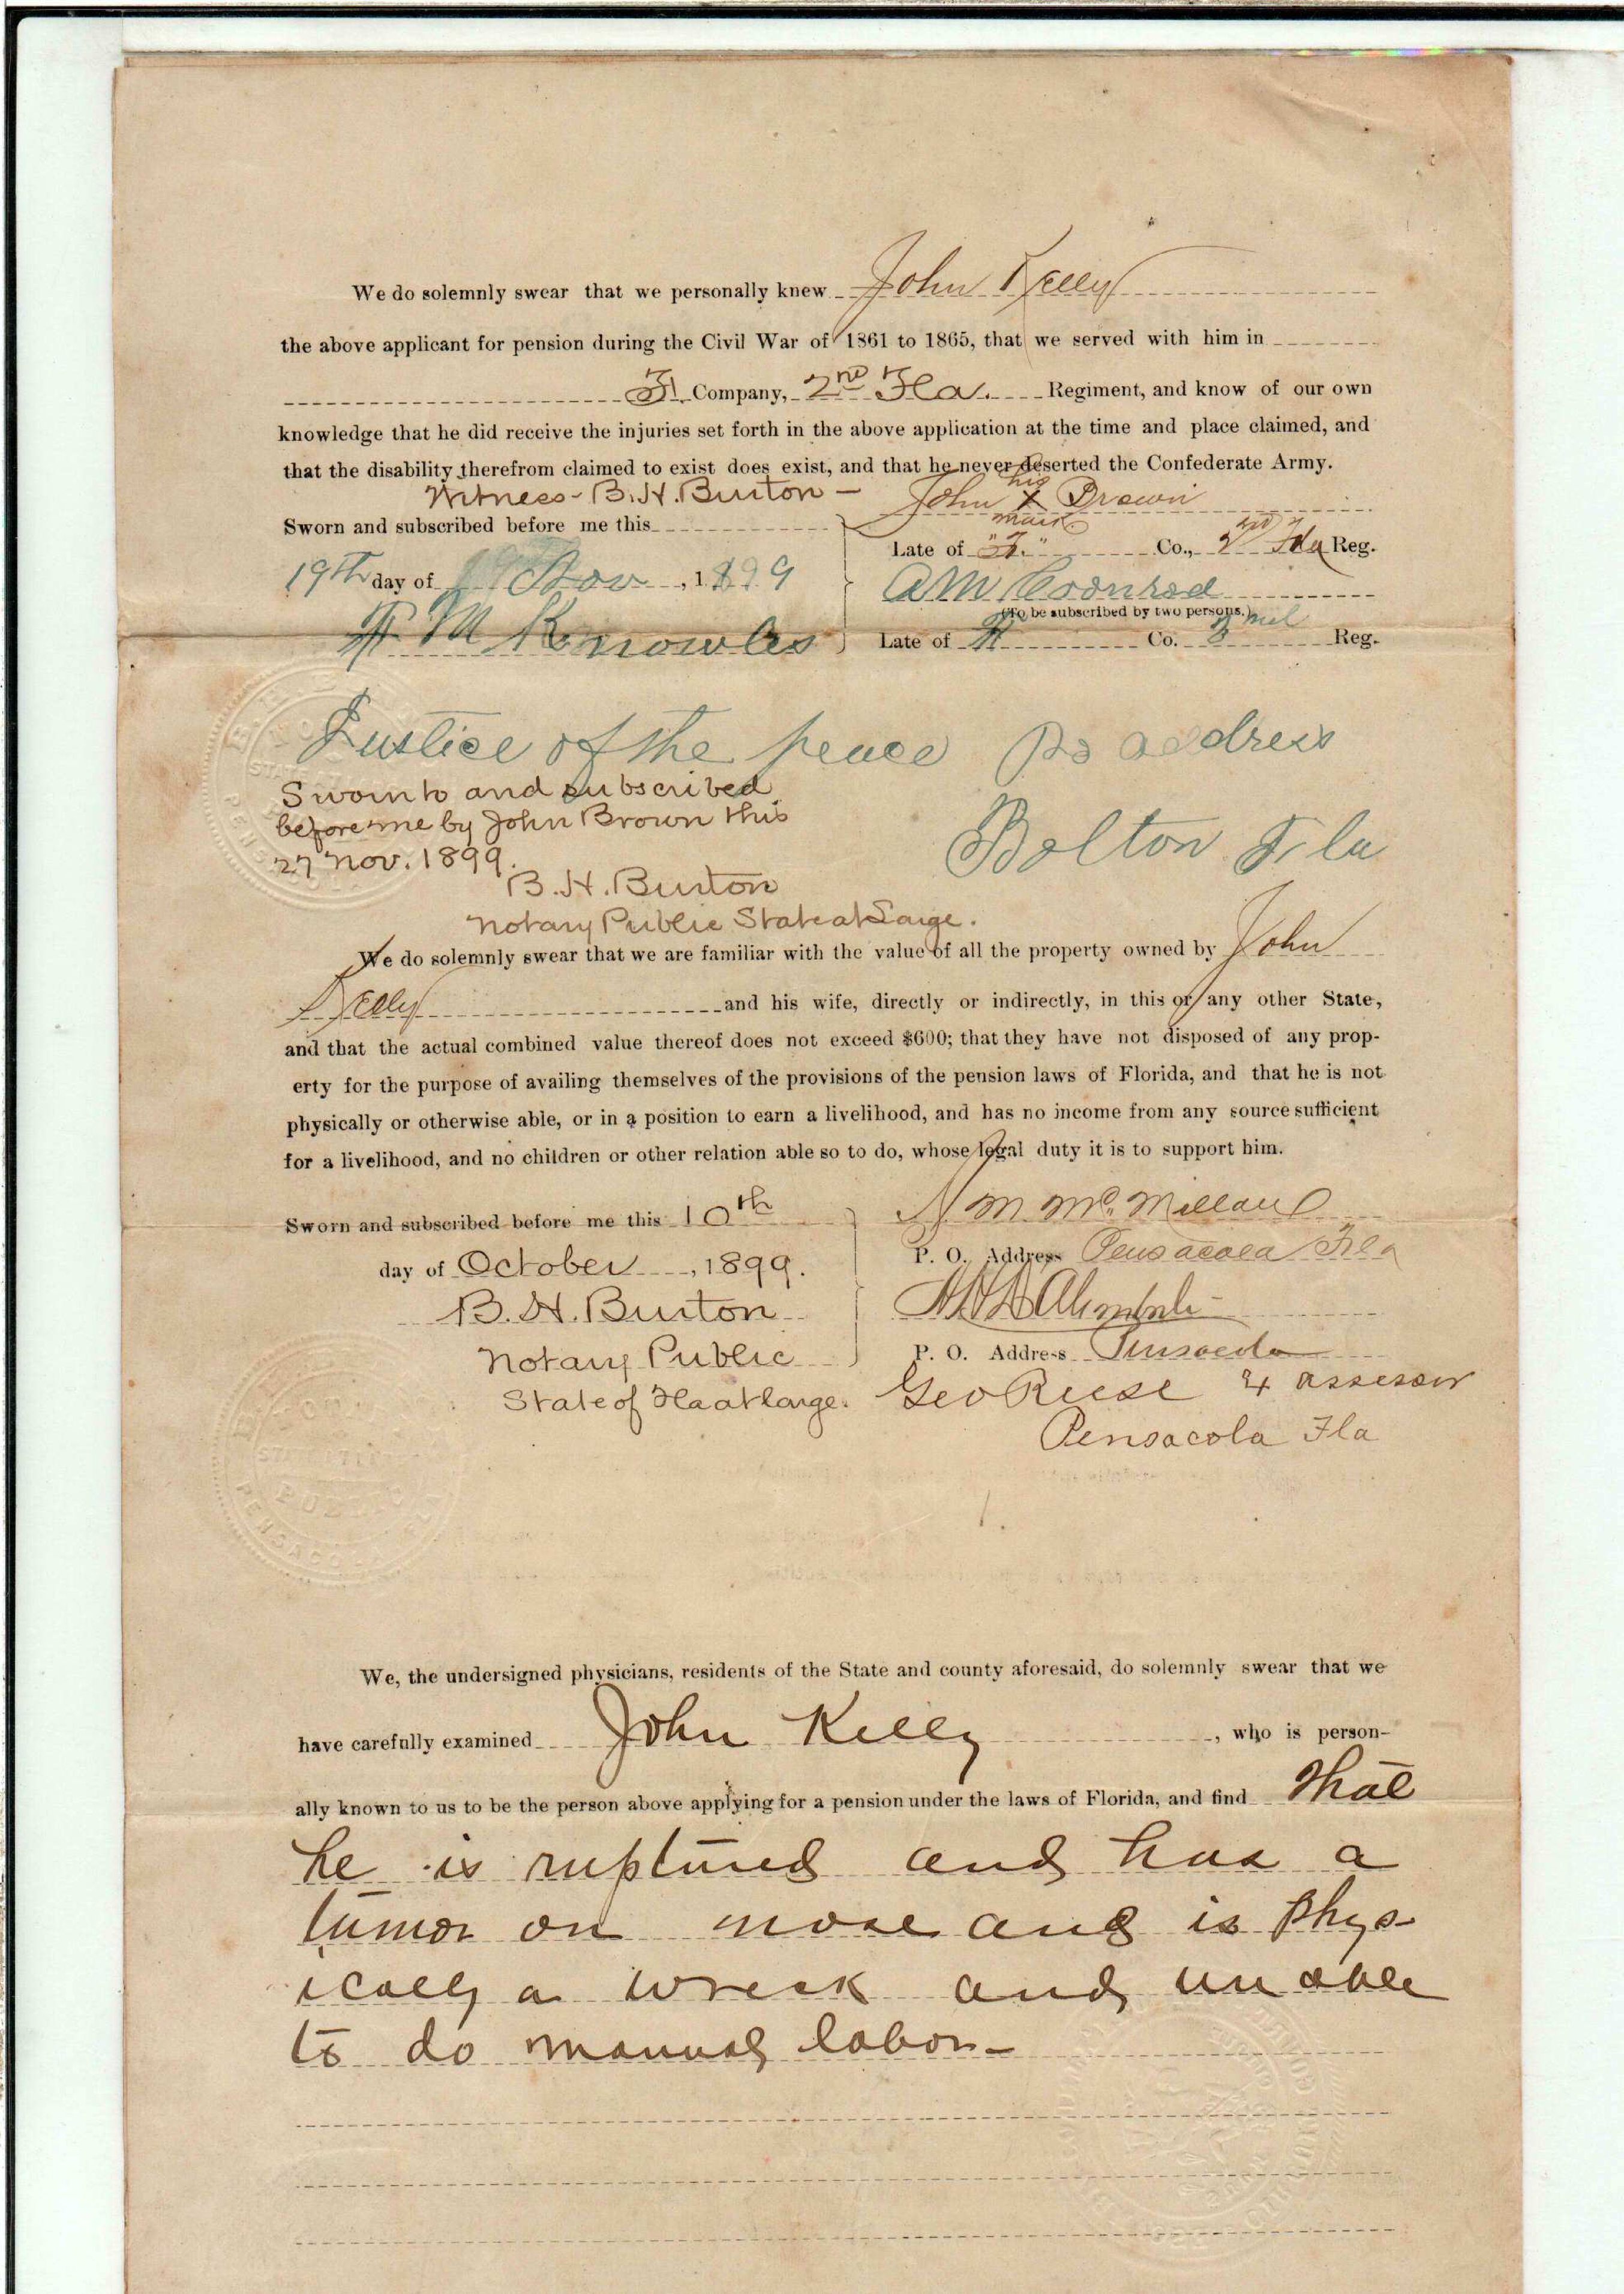 We do solemnly swear that we personally knew John Kelly
the above applicant for pension during the Civil War of 1861 to 1865, that we served with him in
F Company, 2nd Fla. Regiment, and know of our own
knowledge that he did receive the injuries set forth in the above application at the time and place claimed, and
that the disability therefrom claimed to exist does exist, and that he never deserted the Confederate Army.
Witness - B. H. Burton - John his X mark Brown
Sworn and subscribed before me this
Late of "F." Co., 2nd Fla Reg.
19th day of Nov, 1899
A M
(To be subscribed by two persons.)
M Knowles
Late of Co. Reg.
Justice of the peace po address
Sworn to and subscribed
before me by John Brown this
27 Nov. 1899.
Bolton Fla
B. H. Burton
Notary Public State at Large.
We do solemnly swear that we are familiar with the value of all the property owned by John
Kelly and his wife, directly or indirectly, in this or any other State,
and that the actual combined value thereof does not exceed $600; that they have not disposed of any prop-
erty for the purpose of availing themselves of the provisions of the pension laws of Florida, and that he is not
physically or otherwise able, or in a position to earn a livelihood, and has no income from any source sufficient
for a livelihood, and no children or other relation able so to do, whose legal duty it is to support him.
Sworn and subscribed before me this 10th
M McMillan
day of October, 1899.
P. O. Address Pensacola Fla
B. H. Burton
Notary Public
P. O. Address Pensacola
State of Fla at large.
Geo Reese Assessor
Pensacola Fla
We, the undersigned physicians, residents of the State and county aforesaid, do solemnly swear that we
have carefully examined John Kelly, who is person-
ally known to us to be the person above applying for a pension under the laws of Florida, and find that
he is ruptured and has a
tumor on nose and is phys-
ically a wreck and unable
to do manual labor-